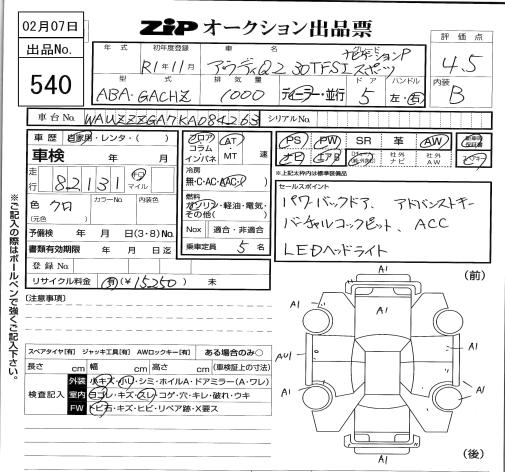 02月07日
ZiPオークション出品票
出品No.
540
年式 初年度登録 車名 グレード
R1年11月 アウディQ2 30TFSI スポーツ ナビゲーションP
型式 排気量 ドア ハンドル
ABA-GACHZ 1000 ディーラー・並行 5 左・右
評価点
4.5
内装
B
車台No. WAUZZZGA7KA084263 シリアルNo.
車歴 自家用・レンタ・( )
車検 年 月
走行 82,131 km マイル
色 クロ カラーNo. 内装色
(元色)
予備検 年 月 日(3・8)No.
書類有効期限 年 月 日迄
登録No.
リサイクル料金 有(¥15250) 未
フロア コラム インパネ
AT・MT 速
冷房
無・C・AC・AAC・( )
燃料
ガソリン・軽油・電気・その他( )
Nox 適合・非適合
乗車定員 5 名
PS PW SR 革 AW
ナビ エアB 社外ナビ 社外AW
※上記太枠内は標準装備品
セールスポイント
パワーバックドア、アドバンストキー
バーチャルコックピット、ACC
LEDヘッドライト
[注意事項]
スペアタイヤ[有] ジャッキ工具[有] AWロックキー[有] ある場合のみ○
長さ cm 幅 cm 高さ cm (車検証上の寸法)
検査記入
外装 小キズ・小凹・シミ・ホイルA・ドアミラー(A・ワレ)
室内 ヨゴレ・キズ・スレ・コゲ・穴・キレ・破れ・ウキ
FW トビ石・キズ・ヒビ・リペア跡・X要ス
※ご記入の際はボールペンで強くご記入下さい。
(前)
A1
A1
A1
AU1
A1
A1
A1
A1
(後)